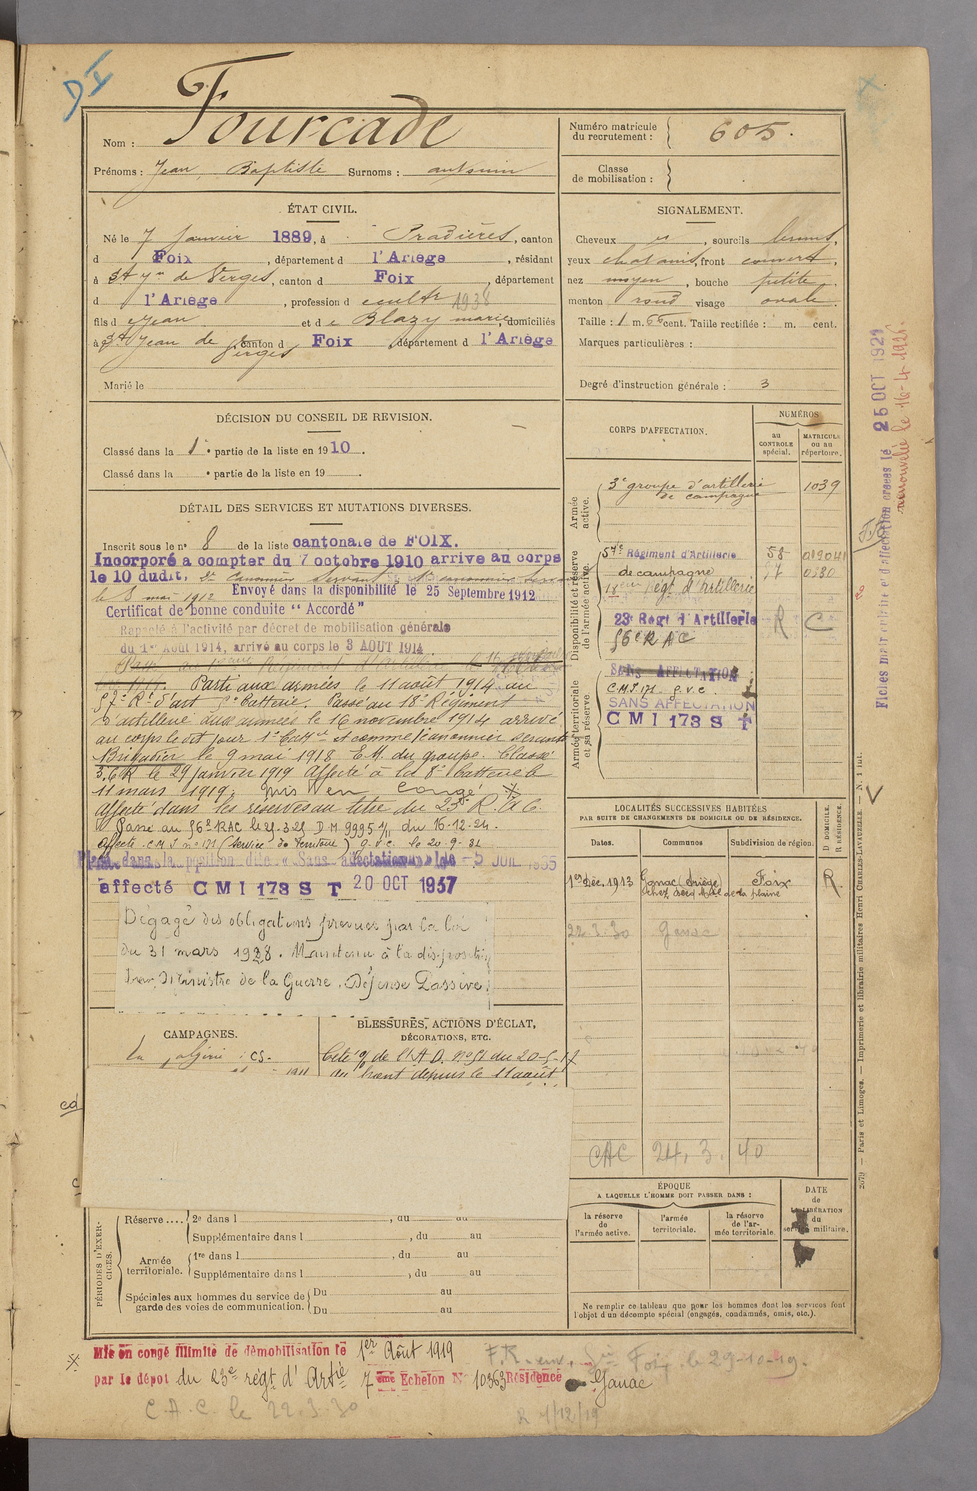 Nom : Fourcade
Prénoms : Jean Baptiste Surnoms :
ÉTAT CIVIL.
Né le 7 Janvier 1889, à Pradières, canton
d Foix, département d l'Ariège, résidant
à St Jean de Verges, canton d Foix, département
d l'Ariège, profession d cultr 1938
fils d e Jean et d e Blazy marie, domiciliés
à St Jean de Verges canton d Foix, département d l'Ariège
Marié le
DÉCISION DU CONSEIL DE REVISION.
Classé dans la 1e partie de la liste en 1910.
Classé dans la e partie de la liste en 19
DÉTAIL DES SERVICES ET MUTATIONS DIVERSES.
Inscrit sous le n° 8 de la liste cantonale de FOIX.
Incorporé a compter du 7 octobre 1910 arrive au corps
le 10 dudit, 2e Canonnier Servant
le 3 mai 1912 Envoyé dans la disponibilité le 25 Septembre 1912
Certificat de bonne conduite "Accordé"
Rappelé à l'activité par décret de mobilisation générale
du 1er Août 1914, arrivé au corps le 3 AOUT 1914
Parti aux armées le 11 août 1914 au
57e Rt d'art batterie. Passé au 18e Régiment
d'artillerie aux armées le 16 novembre 1914 arrivé
au corps le dit jour 1e Battie et comme canonnier servant
Brigadier le 9 mai 1918 EM. du groupe. Classé
3.C.R le 29 Janvier 1919 Affecté à la 8e batterie le
11 mars 1919. Mis en Congé
Affecté dans les réserves au titre du 23e R.A.C.
Passé au 56e RAC le D M 9995 1/11 du 16-12-24.
Affecté C.M.I n° 171 (Service de Territoire) G.V.C. le 20-9-31
Placé dans la position dite "Sans affectation" le -5 JUIL 1935
affecté CMI 173 S T 20 OCT 1937
Dégagé des obligations prévues par la loi
du 31 mars 1928. Maintenu à la disposition
du Ministre de la Guerre. Défense Passive.
CAMPAGNES.
En Algérie : CS.
BLESSURES, ACTIONS D'ÉCLAT,
DÉCORATIONS, ETC.
Cité de l'A.D. n° 51 du 20-5-17
au front depuis le 11 août
PÉRIODES D'EXERCICES.
Réserve .... 2e dans l , du au
Supplémentaire dans l , du au
Armée territoriale. 1re dans l , du au
Supplémentaire dans l , du au
Spéciales aux hommes du service de garde des voies de communication. Du au
Du au
Numéro matricule du recrutement : 605.
Classe de mobilisation :
SIGNALEMENT.
Cheveux et, sourcils bruns,
yeux chatains, front couvert,
nez moyen, bouche petite
menton rond visage ovale
Taille : 1 m. 65 cent. Taille rectifiée : m. cent.
Marques particulières :
Degré d'instruction générale : 3
CORPS D'AFFECTATION.
NUMÉROS
au CONTROLE spécial.
MATRICULE ou au répertoire.
Armée active.
3e groupe d'artillerie de campagne 1039
Disponibilité et réserve de l'armée active.
57e Régiment d'Artillerie 58
de campagne 0580
18e Régt d'Artillerie
23e Régt d'Artillerie R C
56e RAC
Armée territoriale et sa réserve.
SANS AFFECTATION
C.M.I 171. G.V.C.
SANS AFFECTATION
CMI 173 S T
LOCALITÉS SUCCESSIVES HABITÉES
PAR SUITE DE CHANGEMENTS DE DOMICILE OU DE RÉSIDENCE.
Dates. Communes Subdivision de région. D DOMICILE. R RÉSIDENCE.
1er Déc. 1913 Ganac (Ariège) Foix R.
22.3.30 Ganac
CAC 24.3.40
ÉPOQUE
A LAQUELLE L'HOMME DOIT PASSER DANS :
la réserve de l'armée active.
l'armée territoriale.
la réserve de l'armée territoriale.
DATE de LA LIBÉRATION du service militaire.
Ne remplir ce tableau que pour les hommes dont les services font
l'objet d'un décompte spécial (engagés, condamnés, omis, etc.).
Mis en congé illimité de démobilisation le 1er Août 1919
par le dépot du 23e régt d'Artie 7ème Échelon N° 10363 Résidence Ganac
Foix le 29-10-19.
C.A.C. le 22.3.30
R 1/12/19
25 OCT 1921
renouvelé le 16-4-192
2079 — Paris et Limoges. — Imprimerie et librairie militaires Henri CHARLES-LAVAUZELLE. — N. 1 bis.